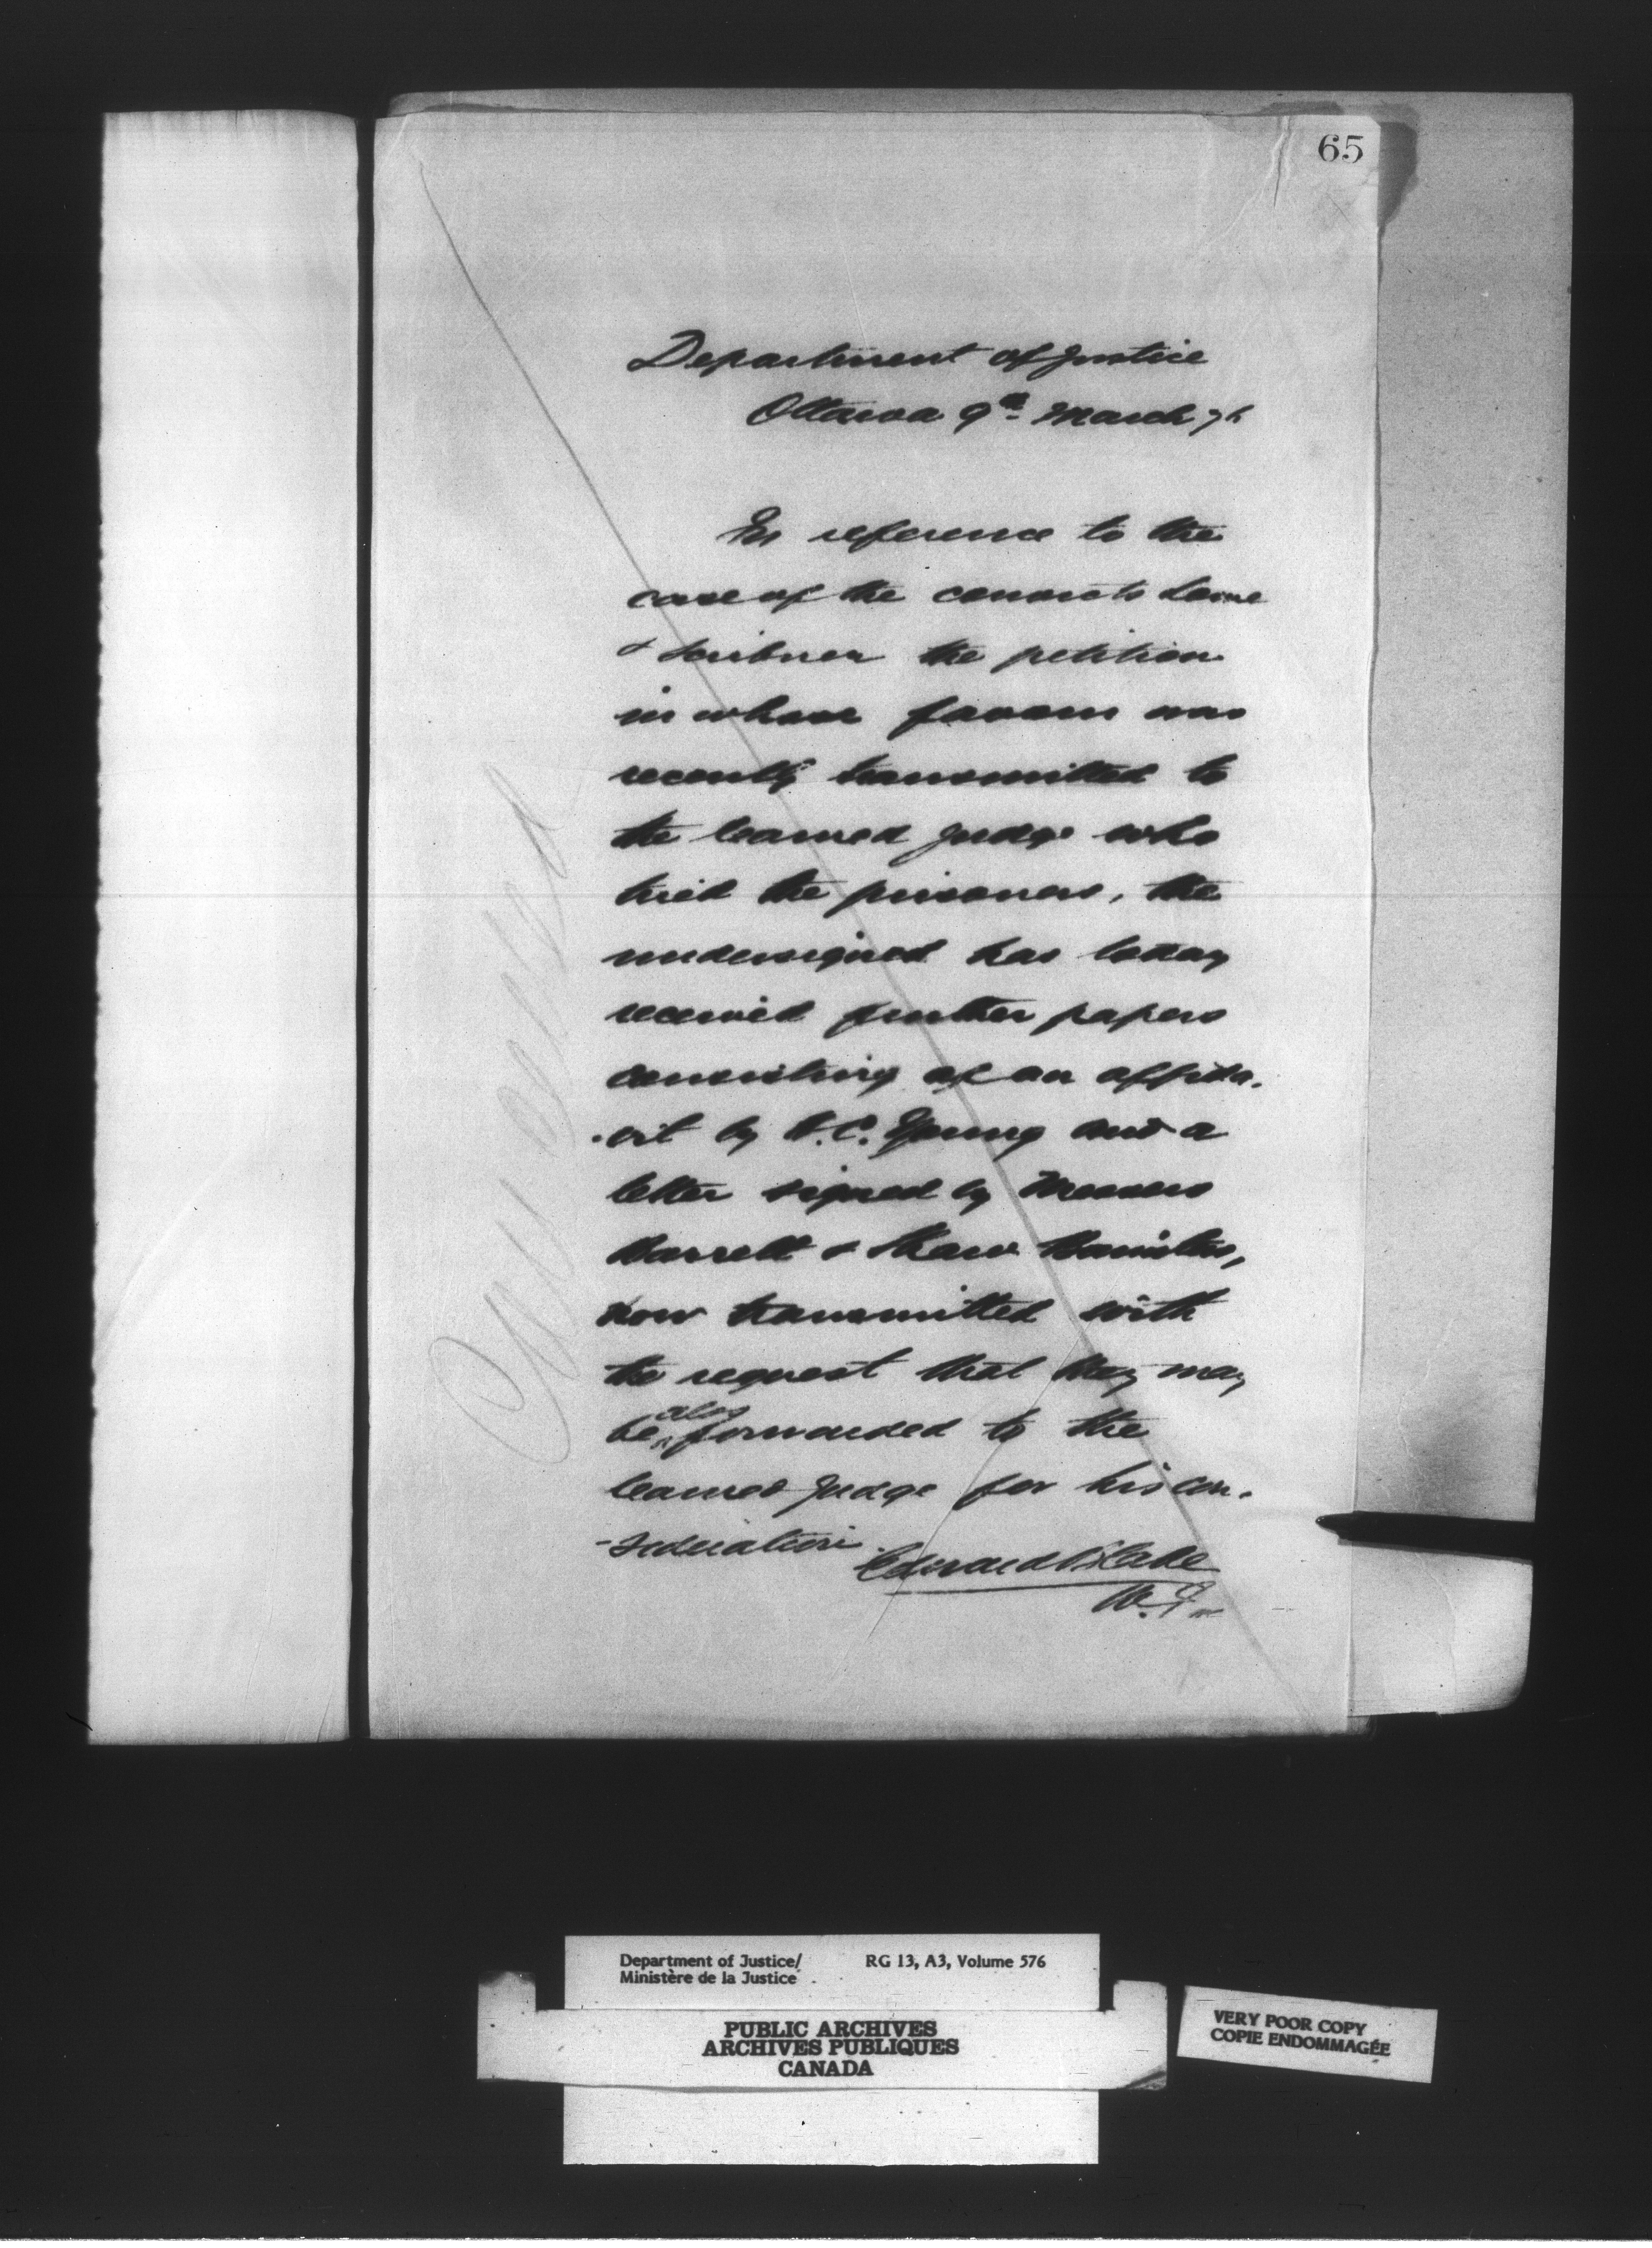 65
Department of Justice
Ottawa 9th March 76
In reference to the
case of the convicts
& Scribner the petition
in whose favour was
recently transmitted to
the learned Judge who
tried the prisoners, the
undersigned has today
received further papers
consisting of an affida-
-vit by Young and a
letter signed by Messrs
Barrett & Shaw Barristers,
now transmitted with
the request that they may
be also forwarded to the
learned Judge for his con-
-sideration.
Edward Blake
Cancelled
Department of Justice/
Ministère de la Justice
RG 13, A3, Volume 576
PUBLIC ARCHIVES
ARCHIVES PUBLIQUES
CANADA
VERY POOR COPY
COPIE ENDOMMAGÉE